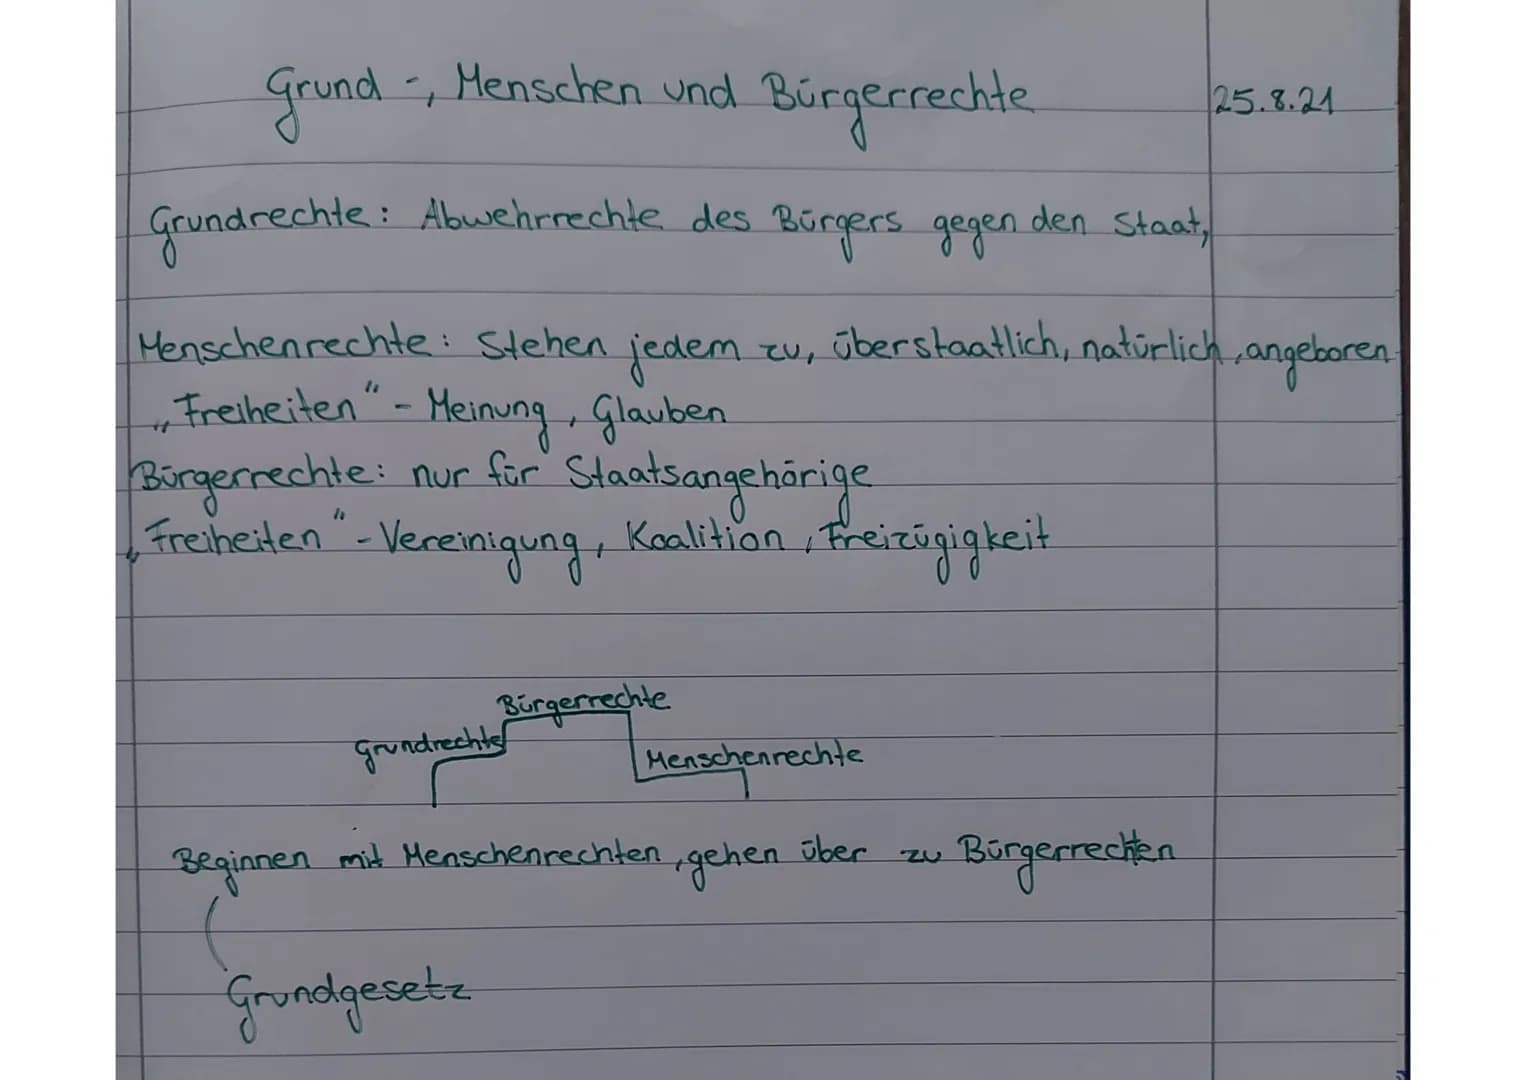 Grund-, Menschen und Bürgerrechte 25.8.21
Grundrechte: Abwehrrechte des Bürgers gegen den Staat,
Menschenrechte: Stehen jedem zu, überstaatlich, natürlich, angeboren
„Freiheiten" - Meinung, Glauben
Bürgerrechte: nur für Staatsangehörige
„Freiheiten" - Vereinigung, Koalition, Freizügigkeit
Bürgerrechte
Grundrechte
Menschenrechte
Beginnen mit Menschenrechten, gehen über zu Bürgerrechten
Grundgesetz